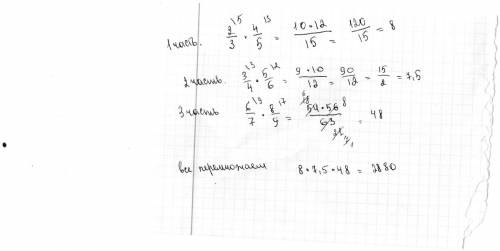 1 часть. 2/3^15 · 4/5^13 = 10·12/15 = 120/15 = 8
2 часть. 3/4^13 · 5/6^12 = 9·10/12 = 90/12 = 15/2 = 7,5
3 часть 6/7^13 · 8/9^17 = 54·56/63 = 48
все перемножаем 8·7,5·48 = 2880